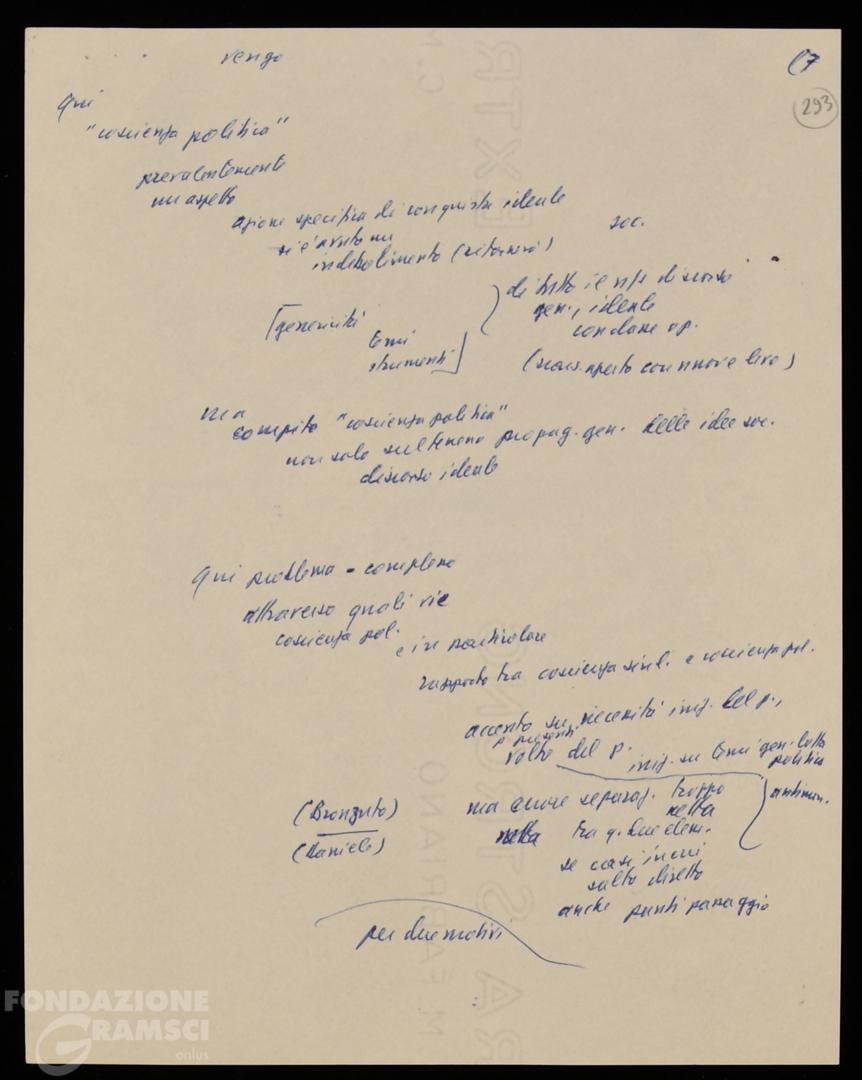 vengo
17
293
Qui
"coscienza politica"
prevalentemente
un aspetto
azione specifica di conquista ideale
si è avuto un
indebolimento (ritornerò)
soc.
di tutto il ns/ discorso
gen., ideale
con classe op.
[genericità
temi
strumenti]
(scars. aperto con nuove leve)
ma
compito "coscienza politica"
non solo sul terreno propag. gen. delle idee soc.
discorso ideale
Qui problema - complesso
attraverso quali vie
coscienza pol.
e in particolare
rapporto tra coscienza sind. e coscienza pol.
accento su necessità iniz. del p.,
volto del p.
iniz. su temi gen. lotta
politica
antimon.
(Bronzuto)
(Daniele)
ma errore separaz. troppo
netta
tra q. due elem.
se casi in cui
salto diretto
anche punti passaggio
per due motivi
FONDAZIONE
GRAMSCI
onlus